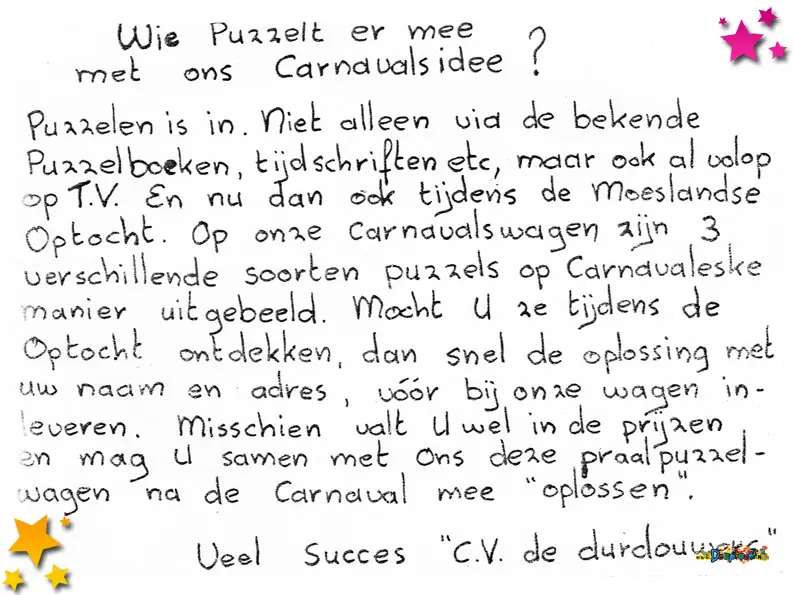 Wie Puzzelt er mee
met ons Carnavalsidee ?
Puzzelen is in. Niet alleen via de bekende
Puzzelboeken, tijdschriften etc, maar ook al volop
op T.V. En nu dan ook tijdens de Moeslandse
Optocht. Op onze Carnavalswagen zijn 3
verschillende soorten puzzels op Carnavaleske
manier uitgebeeld. Mocht U ze tijdens de
Optocht ontdekken, dan snel de oplossing met
uw naam en adres, vóór bij onze wagen in-
leveren. Misschien valt U wel in de prijzen
en mag U samen met Ons deze praalpuzzel-
wagen na de Carnaval mee "oplossen".
Veel Succes "C.V. de durdouwers"